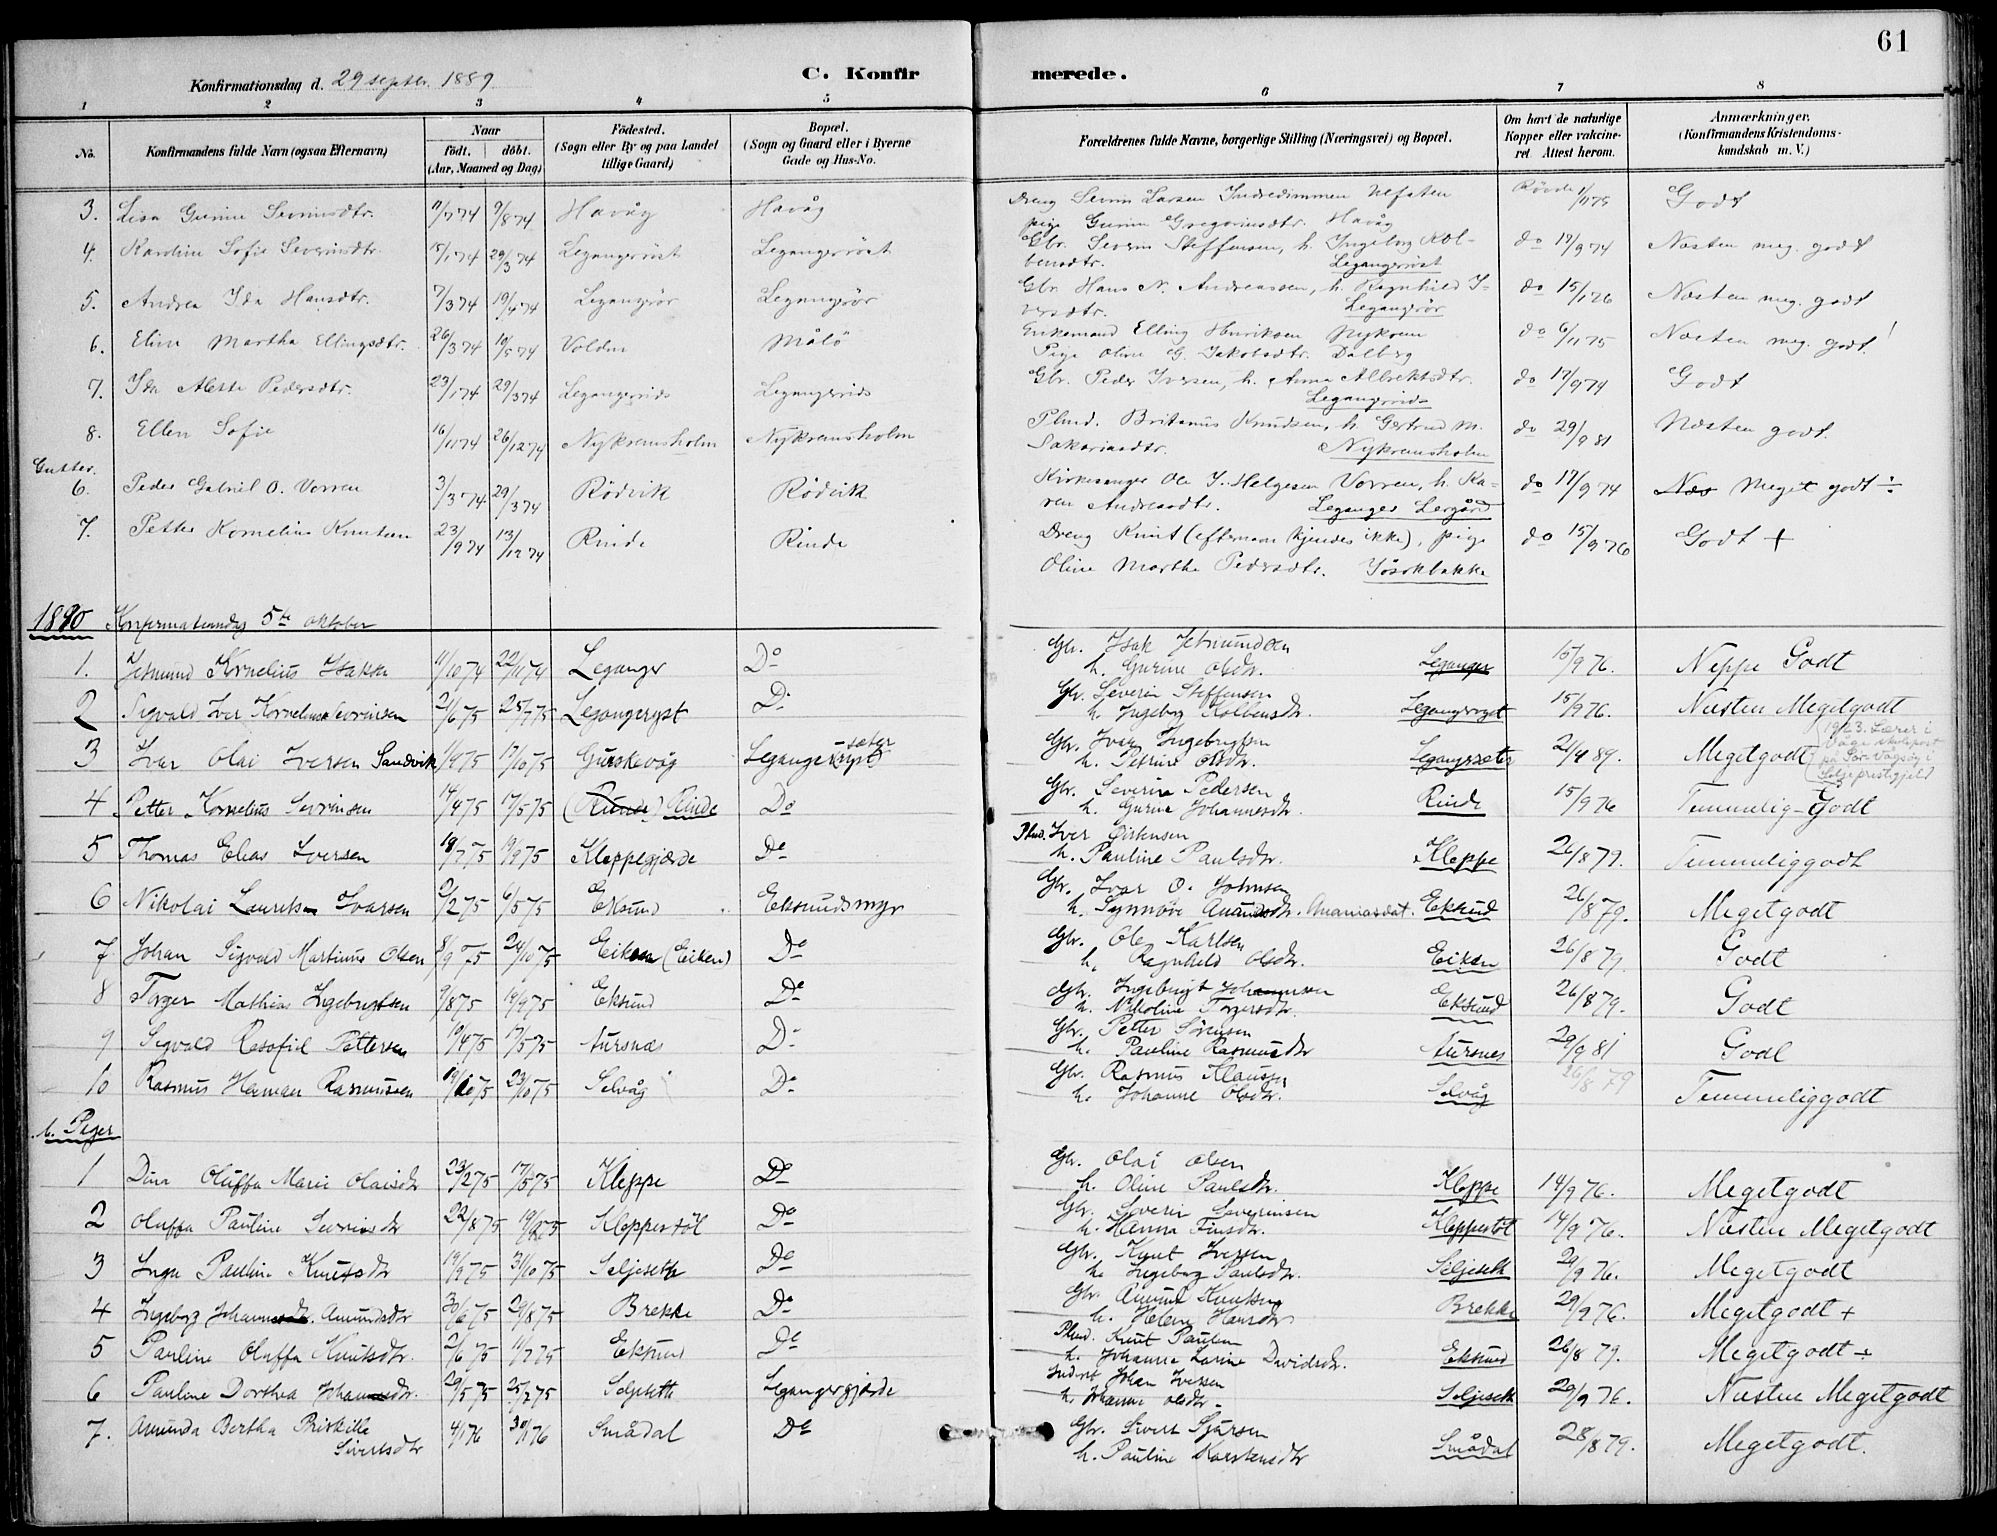 61
Konfirmationsdag d. 29 septbr. 1889. C. Konfirmerede.
1 2 3 4 5 6 7 8
No. Konfirmandens fulde Navn (ogsaa Efternavn) Naar født, døbt. (Aar, Maaned og Dag) Fødested. (Sogn eller By og paa Landet tillige Gaard) Bopæl. (Sogn og Gaard eller i Byerne Gade og Hus-No. Forældrenes fulde Navne, borgerlige Stilling (Næringsvei) og Bopæl. Om havt de naturlige Kopper eller vakcineret Attest herom. Anmærkninger. (Konfirmandens Kristendomskundskab m. V.)
3. Lisa Gurine Sevrinsdtr. 11/7 74 9/8 74 Havåg Havåg Dreng Sevrin Larsen Indredimmen
pige Gurine Gregoriusdtr. Havåg 1/11 75 Godt
4. Karoline Sofie Severinsdtr. 15/1 74 29/3 74 Legangerröst Legangerröst Gbr. Severin Steffensen, h. Ingeborg Kolbensdtr. Legangerröst do 17/9 74 Næsten meg. godt
5. Andrea Ida Hansdtr. 7/3 74 19/4 74 Legangrör Legangrör Gbr. Hans N. Andreassen, h. Ragnhild Iversdtr. Legangrör do 15/1 76 Næsten meg. godt
6. Eline Martha Ellingsdtr. 26/3 74 10/5 74 Volden Målö Enkemand Elling Henriksen Nykrem
Pige Oline G. Jakobsdtr. Dalberg do 6/11 75 Næsten meg. godt!
7. Ida Alette Pedersdtr. 23/1 74 29/3 74 Legangerrids Legangerrids Gbr. Peder Iversen, h. Anna Albrektsdtr. Legangerrids do 17/9 74 Godt
8. Ellen Sofie 16/11 74 26/12 74 Nykremsholm Nykremsholm Plmd. Britanus Knudsen, h. Gertrud M. Sakariasdtr. Nykremsholm do 29/9 81 Næsten godt.
Gutter.
6. Peder Gabriel O. Vorren 3/3 74 29/3 74 Rödvik Rödvik Kirkesanger Ole J. Helgesen Vorren, h. Karen Andreasdtr. Leganger Lergård do 17/9 74 Næs Meget godt ÷
7. Petter Kornelius Knutsen 23/9 74 13/12 74 Rinde Rinde Dreng Knut (efternavn kjendes ikke), pige
Oline Marthe Pedersdtr. do 15/9 76 Godt +
1890 Konfirmationsdag 5te Oktober
1. Jetmund Kornelius Isaksen 11/10 74 22/11 74 Leganger Do Gbr. Isak Jetmundsen
h. Gurine Olsdtr. Leganger 15/9 76. Neppe Godt
2 Sigvald Iver Kornelius Sevrinsen 2/6 75 25/7 75 Legangeryst Do Gbr. Severin Steffensen
h. Ingeborg Kolbensdtr. Legangeryst 15/9 76. Næsten Megetgodt
3 Ivar Olai Iversen Sandvik 1/9 75 17/10 75 Gurskevåg Legangeryst -sæter Gbr. Ivar Ingebrigtsen
h. Petrine Olsdtr. Legangersæter 21/4 89. Megetgodt (1923. Lærer i Våge skulepost på Sør-Vågsøy i Selje prestgjeld)
4 Petter Kornelius Sevrinsen 14/4 75 17/5 75 (Runde) Rinde Do Gbr. Severin Pedersen
h. Gurine Johannesdtr. Rinde 15/9 76 Temmelig-Godt
5 Thomas Elias Iversen 18/7 75 19/9 75 Kleppegjærde Do Plmd. Iver
h. Pauline Paulsdtr. Kleppe 26/8 79. Temmeliggodt
6 Nikolai Lauritsen Ivarsen 2/2 75 6/5 75 Eksund Eksundsmyr Gbr. Ivar O. Johnsen
h. Synnöve Amundsdtr. Ananiasdat. Eksund 26/8 79. Megetgodt
7 Johan Sigvald Martinus Olsen 8/9 75 24/10 75 Eiksen (Eiken) Do Gbr. Ole Karlsen
h. Ragnhild Olsdtr. Eiken 26/8 79. Godt
8 Torger Mathias Ingebrigtsen 9/8 75 19/9 75 Eksund Do Gbr. Ingebrigt Johannesen
h. Nikoline Torgersdtr. Eksund 26/8 79. Godt
9 Sigvald Rasofiel Pettersen 19/4 75 17/5 75 Aursnæs Do Gbr. Petter Sörensen
h. Pauline Rasmusdtr Aursnes 29/9 81 Godt
10 Rasmus Herman Rasmussen 19/1 75 23/10 75 Selvåg Do Gbr. Rasmus Klausen
h. Johanne Olsdtr. Selvåg 26/8 79 Temmeliggodt
b. Piger
1 Dina Oluffa Marie Olaisdtr 23/2 75 17/5 75 Kleppe Do Gbr. Olai Olsen
h. Oline Paulsdtr. Kleppe 14/9 76. Megetgodt
2 Oluffa Pauline Sevrinsdtr 22/8 75 19/9 75 Kleppestöl Do Gbr. Severin Severinsen
h. Hanna Finsdtr. Kleppestöl 14/9 76. Næsten Megetgodt
3 Inga Pauline Knutsdtr 19/9 75 31/10 75 Seljeseth Do Gbr. Knut Iversen
h. Ingeborg Paulsdtr. Seljeseth 29/9 76. Megetgodt
4 Ingeborg Johannesdtr. Amundsdtr 30/6 75 29/8 75 Brekke Do Gbr. Amund Knutsen
h. Helene Hansdtr Brekke 29/9 76. Megetgodt +
5 Pauline Oluffa Knutsdtr. 2/6 75 11/7 75 Eksund Do Plmd. Knut Paulsen
h. Johanna Larine Davidsdtr. Eksund 26/8 79. Megetgodt ÷
6 Pauline Dorthea Johannesdtr. 29/5 75 25/7 75 Seljeseth Legangergjærde Inderst Johan Iversen
h. Johanne Olsdtr. Seljeseth 29/9 76. Næsten Megetgodt
7. Amunda Bertha Priskille Sivertsdtr 4/1 76 30/1 76 Smådal Do Gbr. Sivert Sjursen
h. Pauline Karstensdtr Smådal 28/8 79. Megetgodt.